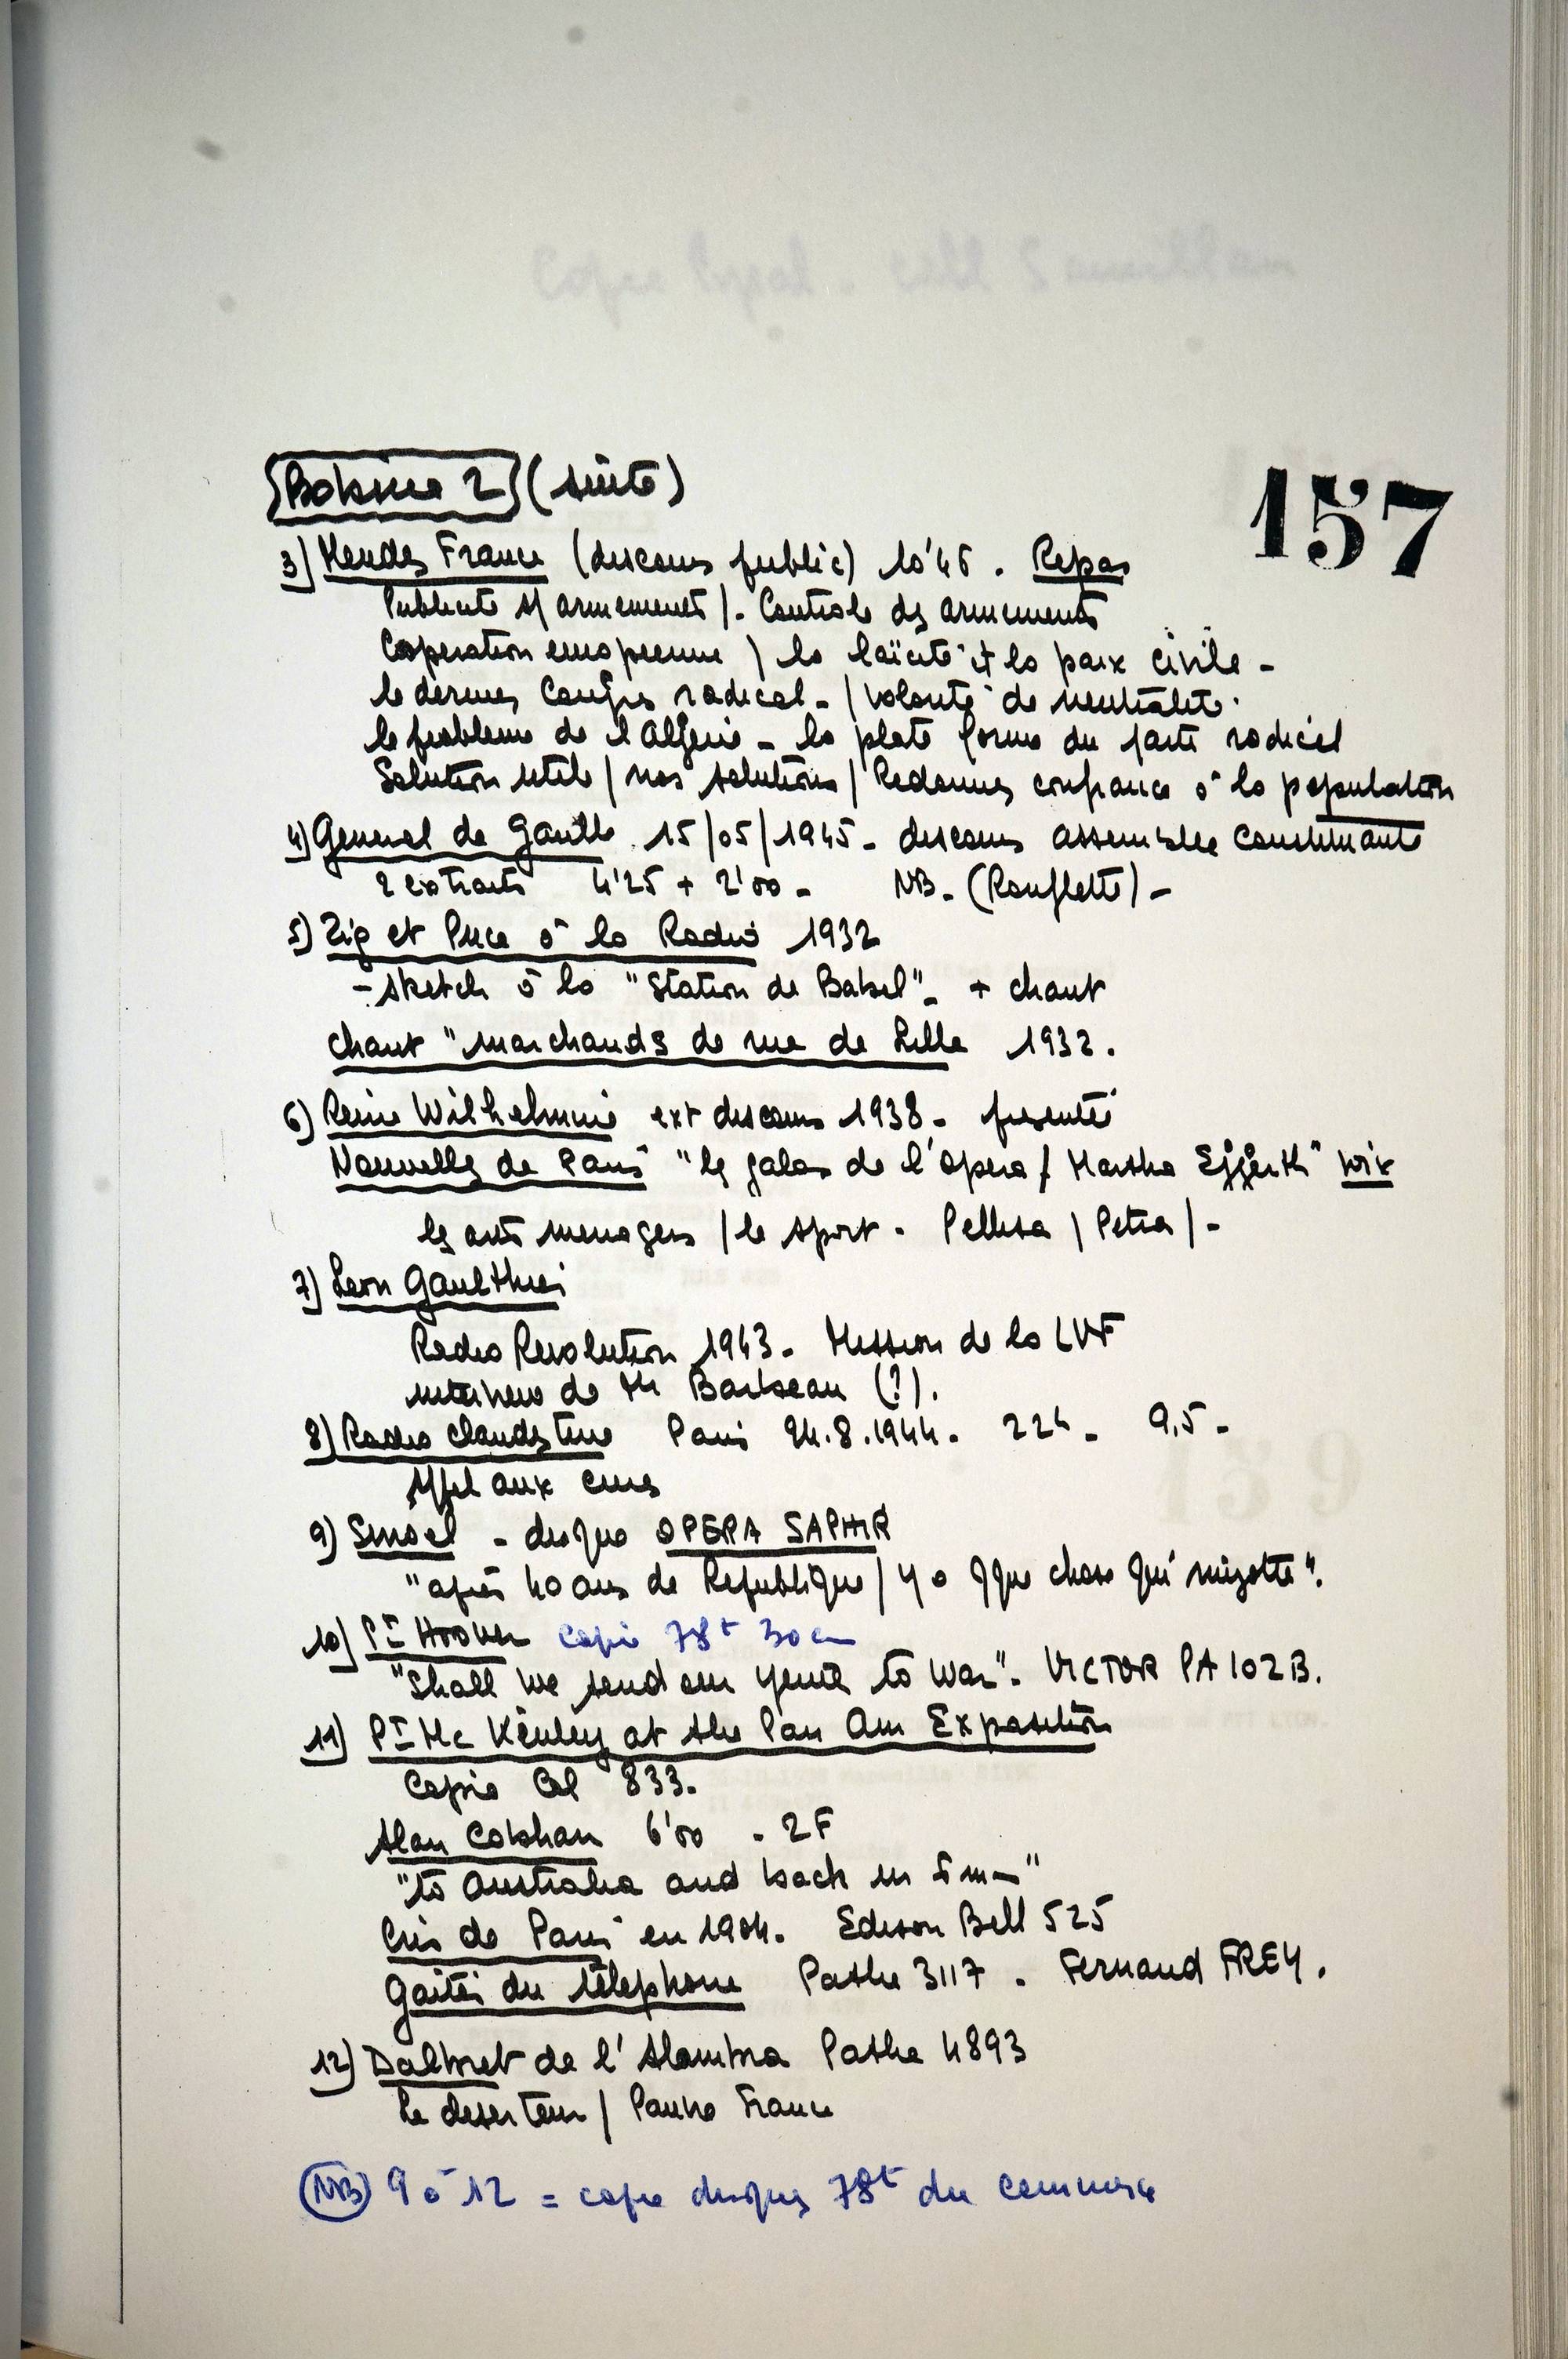 Bobine 2 (suite)
157
3) Mendes France (discours public) 10'45. Repas
Publicité s/ armements /. Controle des armements
Coperation europeenne / la laïcité et la paix civile -
le dernier Congrès radical - / Volonté de neutralité.
le probleme de l'Algerie - la plate forme du parti radical
Solution utile / nos solutions / Redonner confiance à la population
4) General de Gaulle. 15/05/1945 - discours assemblee constituante
2 extraits 4'25 + 2'00 - NB. (Ronflette) -
5) Zig et Puce à la Radio 1932
- sketch à la "Station de Babel" - + chant
chant "marchands de rue de Lille 1932.
6) Reine Wilhelmine ext discours 1938 - presenté
Nouvelles de Paris "les galas de l'opera / Martha Eggerth" voix
les arts menagers / le sport - Pelissa / Petra / -
7) Leon Gaulthier
Radio Revolution 1943 - Mission de la LVF
interview de Mr Barbeau (?).
8) Radio clandestine Paris 24.8.1944. 22h - 9,5 -
Appel aux cures
9) Sinoel - disque OPERA SAPHIR
"après 40 ans de Republique / Y a qque chose qui mijotte".
10) Pt Hoover copie 78t 30 cm
"Shall we send our youth to war". VICTOR PA 102 B.
11) Pt Mc Kinley at the Pan Am Exposition
Copie Col 833.
Alan Cobhan 6'00 - 2F
"to Australia and back in 6 m—"
Cris de Paris en 1904. Edison Bell 525
Gaités du téléphone Pathe 3117 - Fernand FREY.
12) Dalbret de l'Alambra Pathe 4893
Le deserteur / Pauvre France
NB 9 à 12 = copie disques 78t du commerce